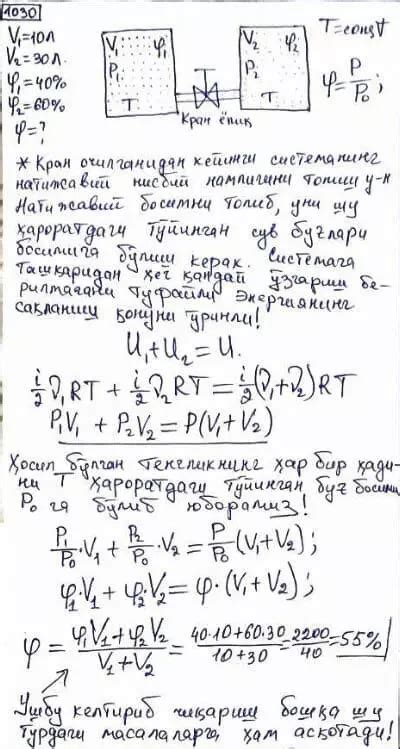 1030
V₁=10л
V₂=30л.
φ₁=40%
φ₂=60%
φ=?
V₁ φ₁
P₁
T
V₂ φ₂
P₂
T
Кран ёпиқ
T=const
φ=P/P₀;
* Кран очилганидан кейинги системанинг
натижавий нисбий намлигини топиш у-н
Натижавий босимни топиб, уни шу
ҳароратдаги тўйинган сув буғлари
босимига бўлиш керак. Системага
ташқаридан ҳеч қандай ўзгариш бе-
рилмагани туфайли энергиянинг
сақланиш қонуни ўринли!
U₁+U₂=U.
i/2 ν₁RT + i/2 ν₂RT = i/2(ν₁+ν₂)RT
P₁V₁ + P₂V₂ = P(V₁+V₂)
Ҳосил бўлган тенгликнинг ҳар бир ҳади-
ни T ҳароратдаги тўйинган буғ босими
P₀ га бўлиб юборамиз!
P₁/P₀·V₁ + P₂/P₀·V₂ = P/P₀(V₁+V₂);
φ₁·V₁+φ₂·V₂=φ·(V₁+V₂);
φ = (φ₁V₁+φ₂V₂)/(V₁+V₂) = (40·10+60·30)/(10+30) = 2200/40 = 55%
Ушбу келтириб чиқариш бошқа шу
турдаги масалаларга ҳам асқотади!